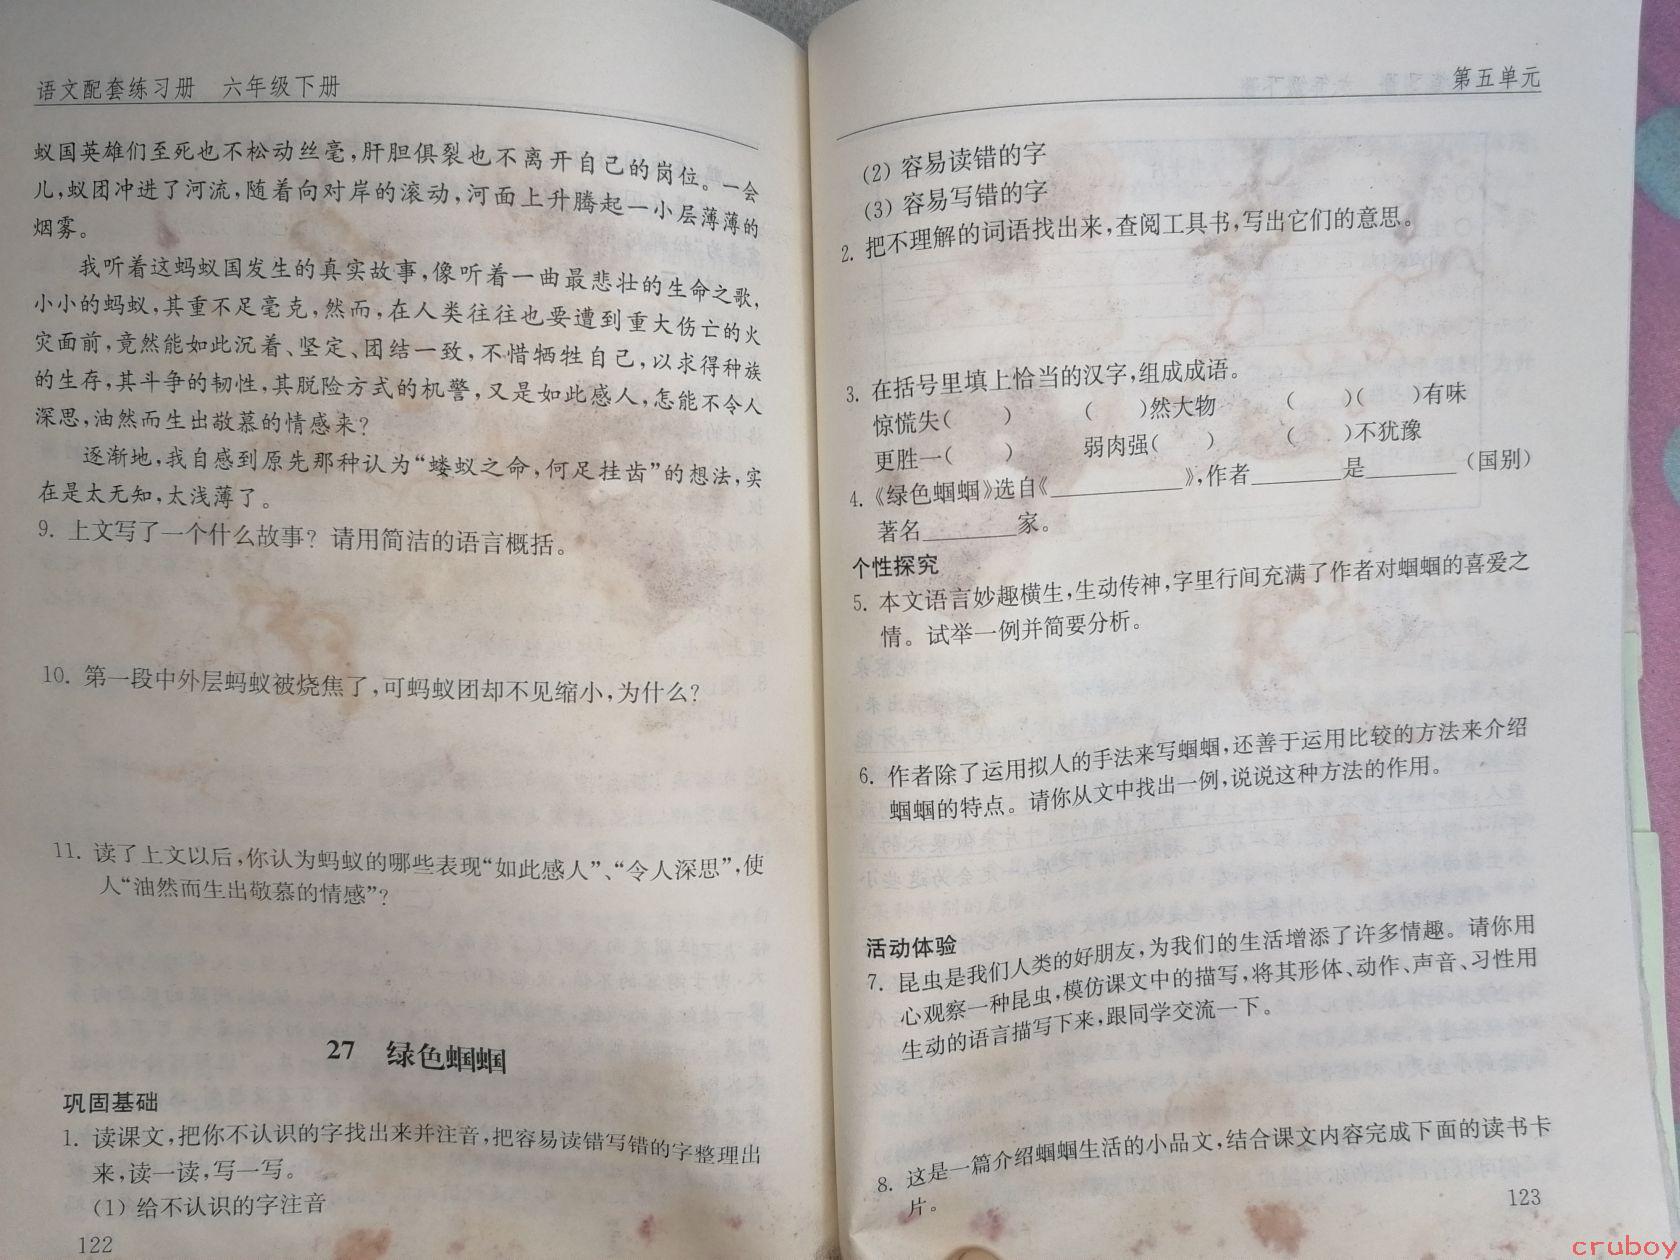 语文配套练习册 六年级下册
蚁国英雄们至死也不松动丝毫,肝胆俱裂也不离开自己的岗位。一会
儿,蚁团冲进了河流,随着向对岸的滚动,河面上升腾起一小层薄薄的
烟雾。
我听着这蚂蚁国发生的真实故事,像听着一曲最悲壮的生命之歌,
小小的蚂蚁,其重不足毫克,然而,在人类往往也要遭到重大伤亡的火
灾面前,竟然能如此沉着、坚定、团结一致,不惜牺牲自己,以求得种族
的生存,其斗争的韧性,其脱险方式的机警,又是如此感人,怎能不令人
深思,油然而生出敬慕的情感来?
逐渐地,我自感到原先那种认为“蝼蚁之命,何足挂齿”的想法,实
在是太无知,太浅薄了。
9. 上文写了一个什么故事?请用简洁的语言概括。
10. 第一段中外层蚂蚁被烧焦了,可蚂蚁团却不见缩小,为什么?
11. 读了上文以后,你认为蚂蚁的哪些表现“如此感人”、“令人深思”,使
人“油然而生出敬慕的情感”?
27 绿色蝈蝈
巩固基础
1. 读课文,把你不认识的字找出来并注音,把容易读错写错的字整理出
来,读一读,写一写。
(1) 给不认识的字注音
122
第五单元
(2) 容易读错的字
(3) 容易写错的字
2. 把不理解的词语找出来,查阅工具书,写出它们的意思。
3. 在括号里填上恰当的汉字,组成成语。
惊慌失( ) ( )然大物 ( )( )有味
更胜一( ) 弱肉强( ) ( )不犹豫
4.《绿色蝈蝈》选自《____________》,作者________是________(国别)
著名________家。
个性探究
5. 本文语言妙趣横生,生动传神,字里行间充满了作者对蝈蝈的喜爱之
情。试举一例并简要分析。
6. 作者除了运用拟人的手法来写蝈蝈,还善于运用比较的方法来介绍
蝈蝈的特点。请你从文中找出一例,说说这种方法的作用。
活动体验
7. 昆虫是我们人类的好朋友,为我们的生活增添了许多情趣。请你用
心观察一种昆虫,模仿课文中的描写,将其形体、动作、声音、习性用
生动的语言描写下来,跟同学交流一下。
8. 这是一篇介绍蝈蝈生活的小品文,结合课文内容完成下面的读书卡
片。
123
cruboy